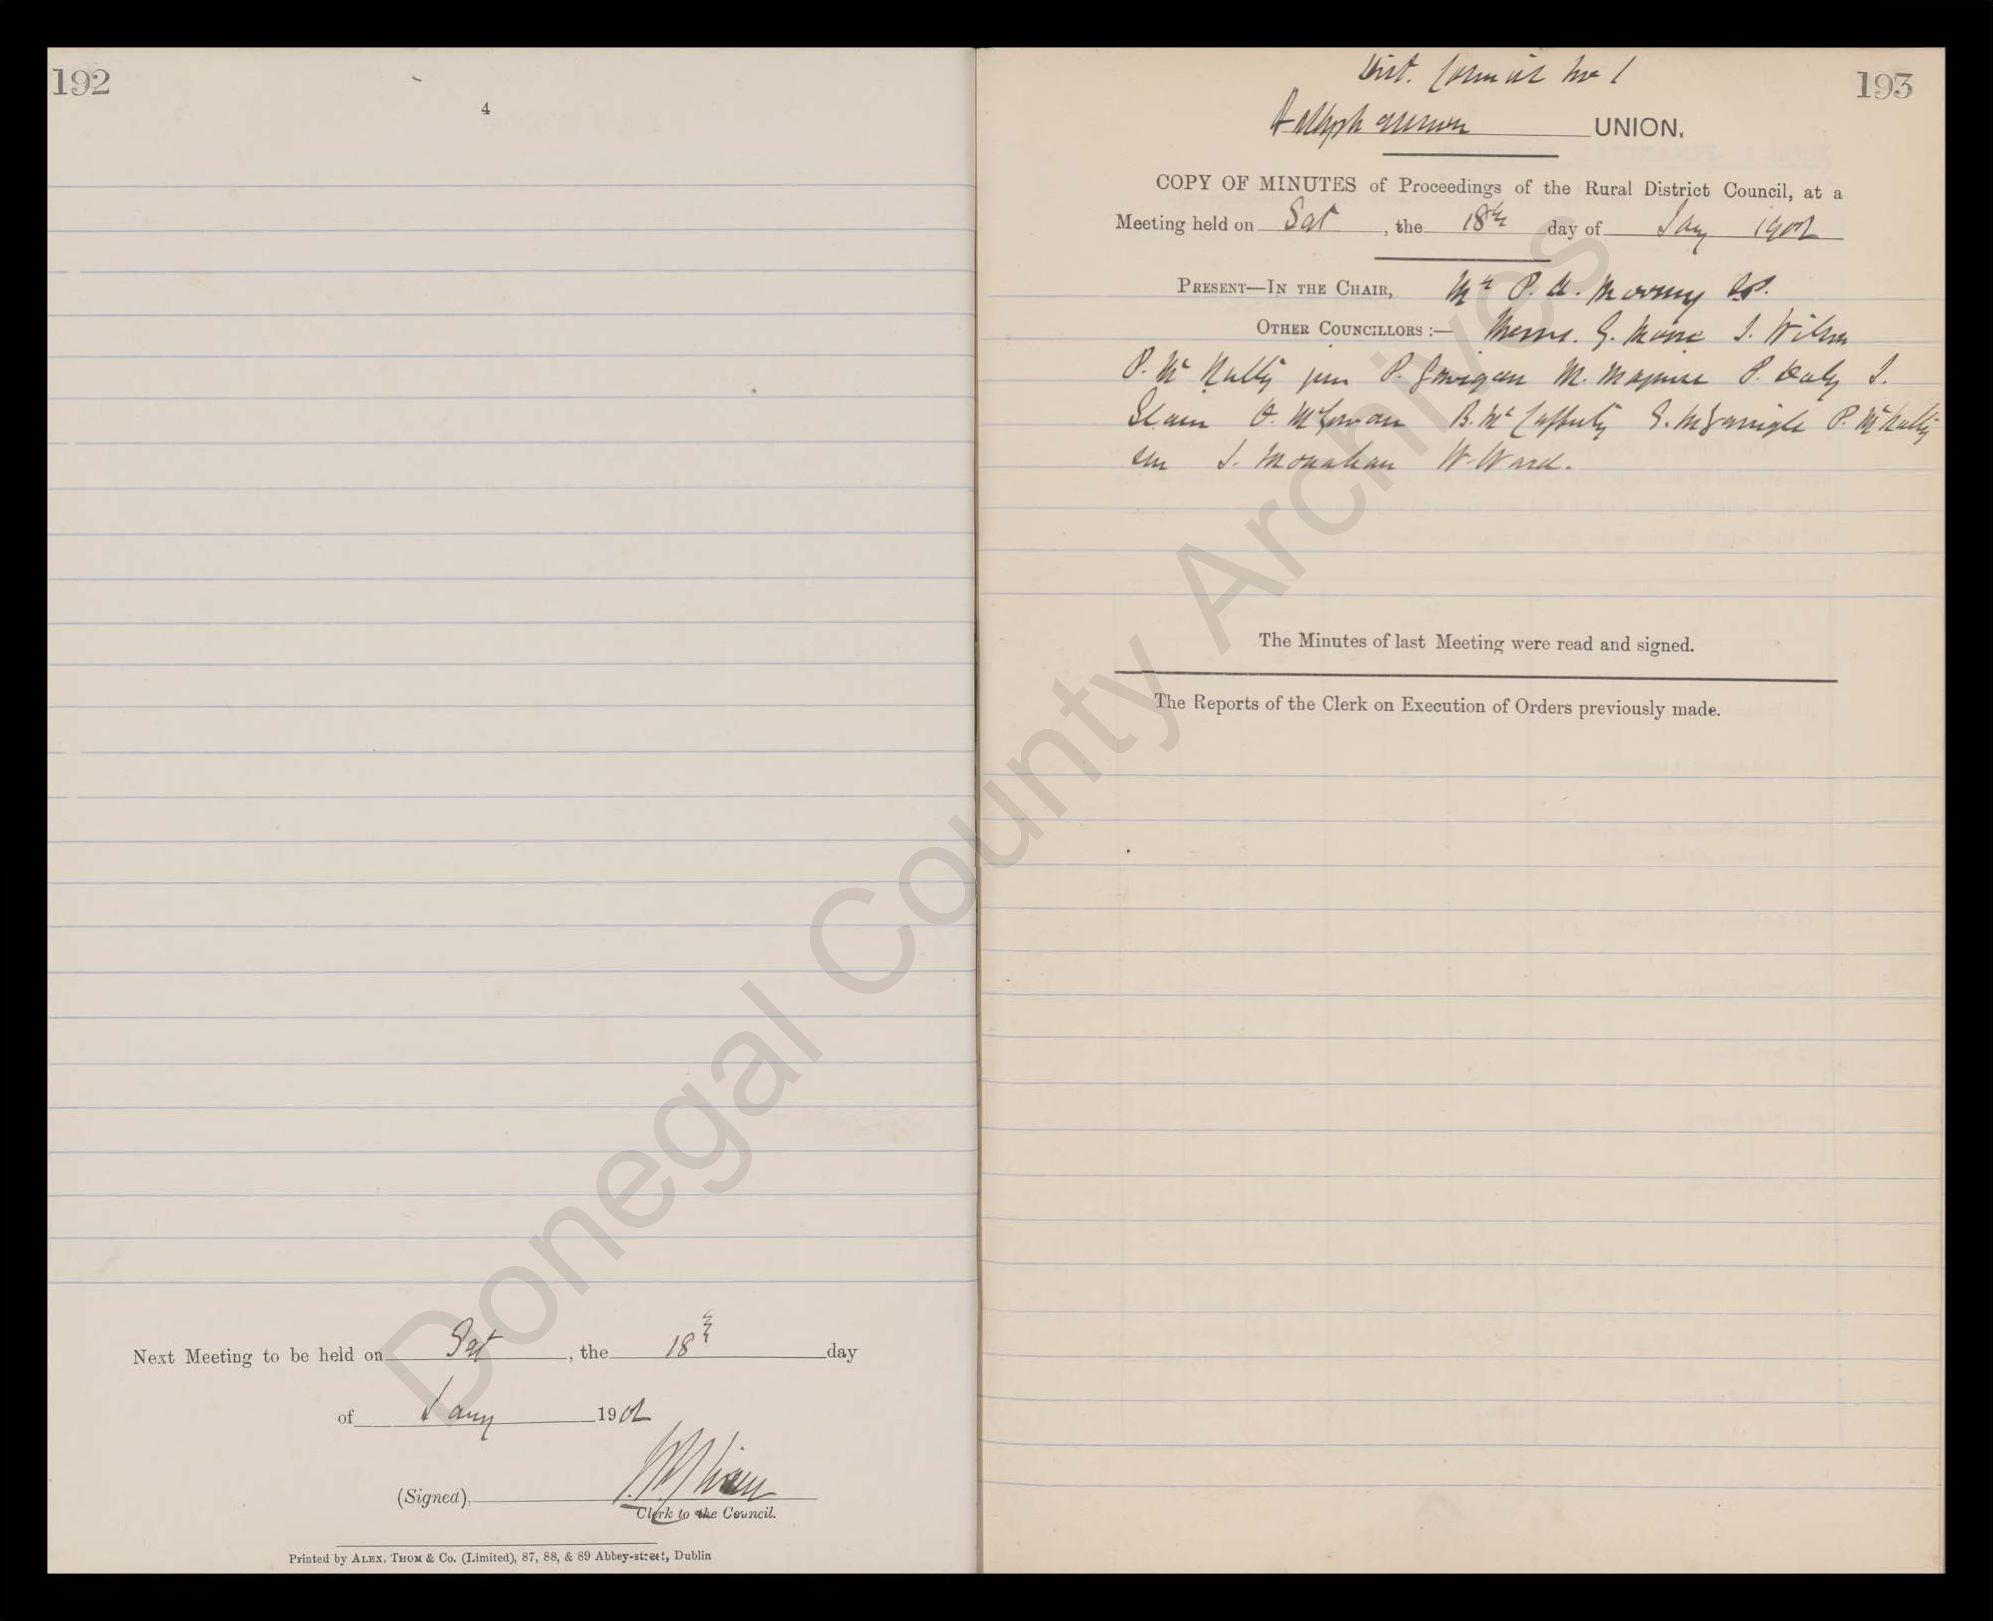 192
4
Next Meeting to be held on Sat, the 18th day
of Jany 1902
(Signed),
Clerk to the Council.
Printed by ALEX. THOM & Co. (Limited), 87, 88, & 89 Abbey-street, Dublin
193
Dist. Council No 1
Ballyshannon UNION.
COPY OF MINUTES of Proceedings of the Rural District Council, at a
Meeting held on Sat, the 18th day of Jany 1902
PRESENT—IN THE CHAIR, Mr P. U. Mooney
OTHER COUNCILLORS :— Messrs. G. Moore J. Wilson
P. McNulty jun P. Gavigan M. Maguire P. Daly J.
Slavin O. McGowan B. McCafferty G. McGarrigle P. McNulty
sen J. Monahan W. Ward.
The Minutes of last Meeting were read and signed.
The Reports of the Clerk on Execution of Orders previously made.
Donegal County Archives